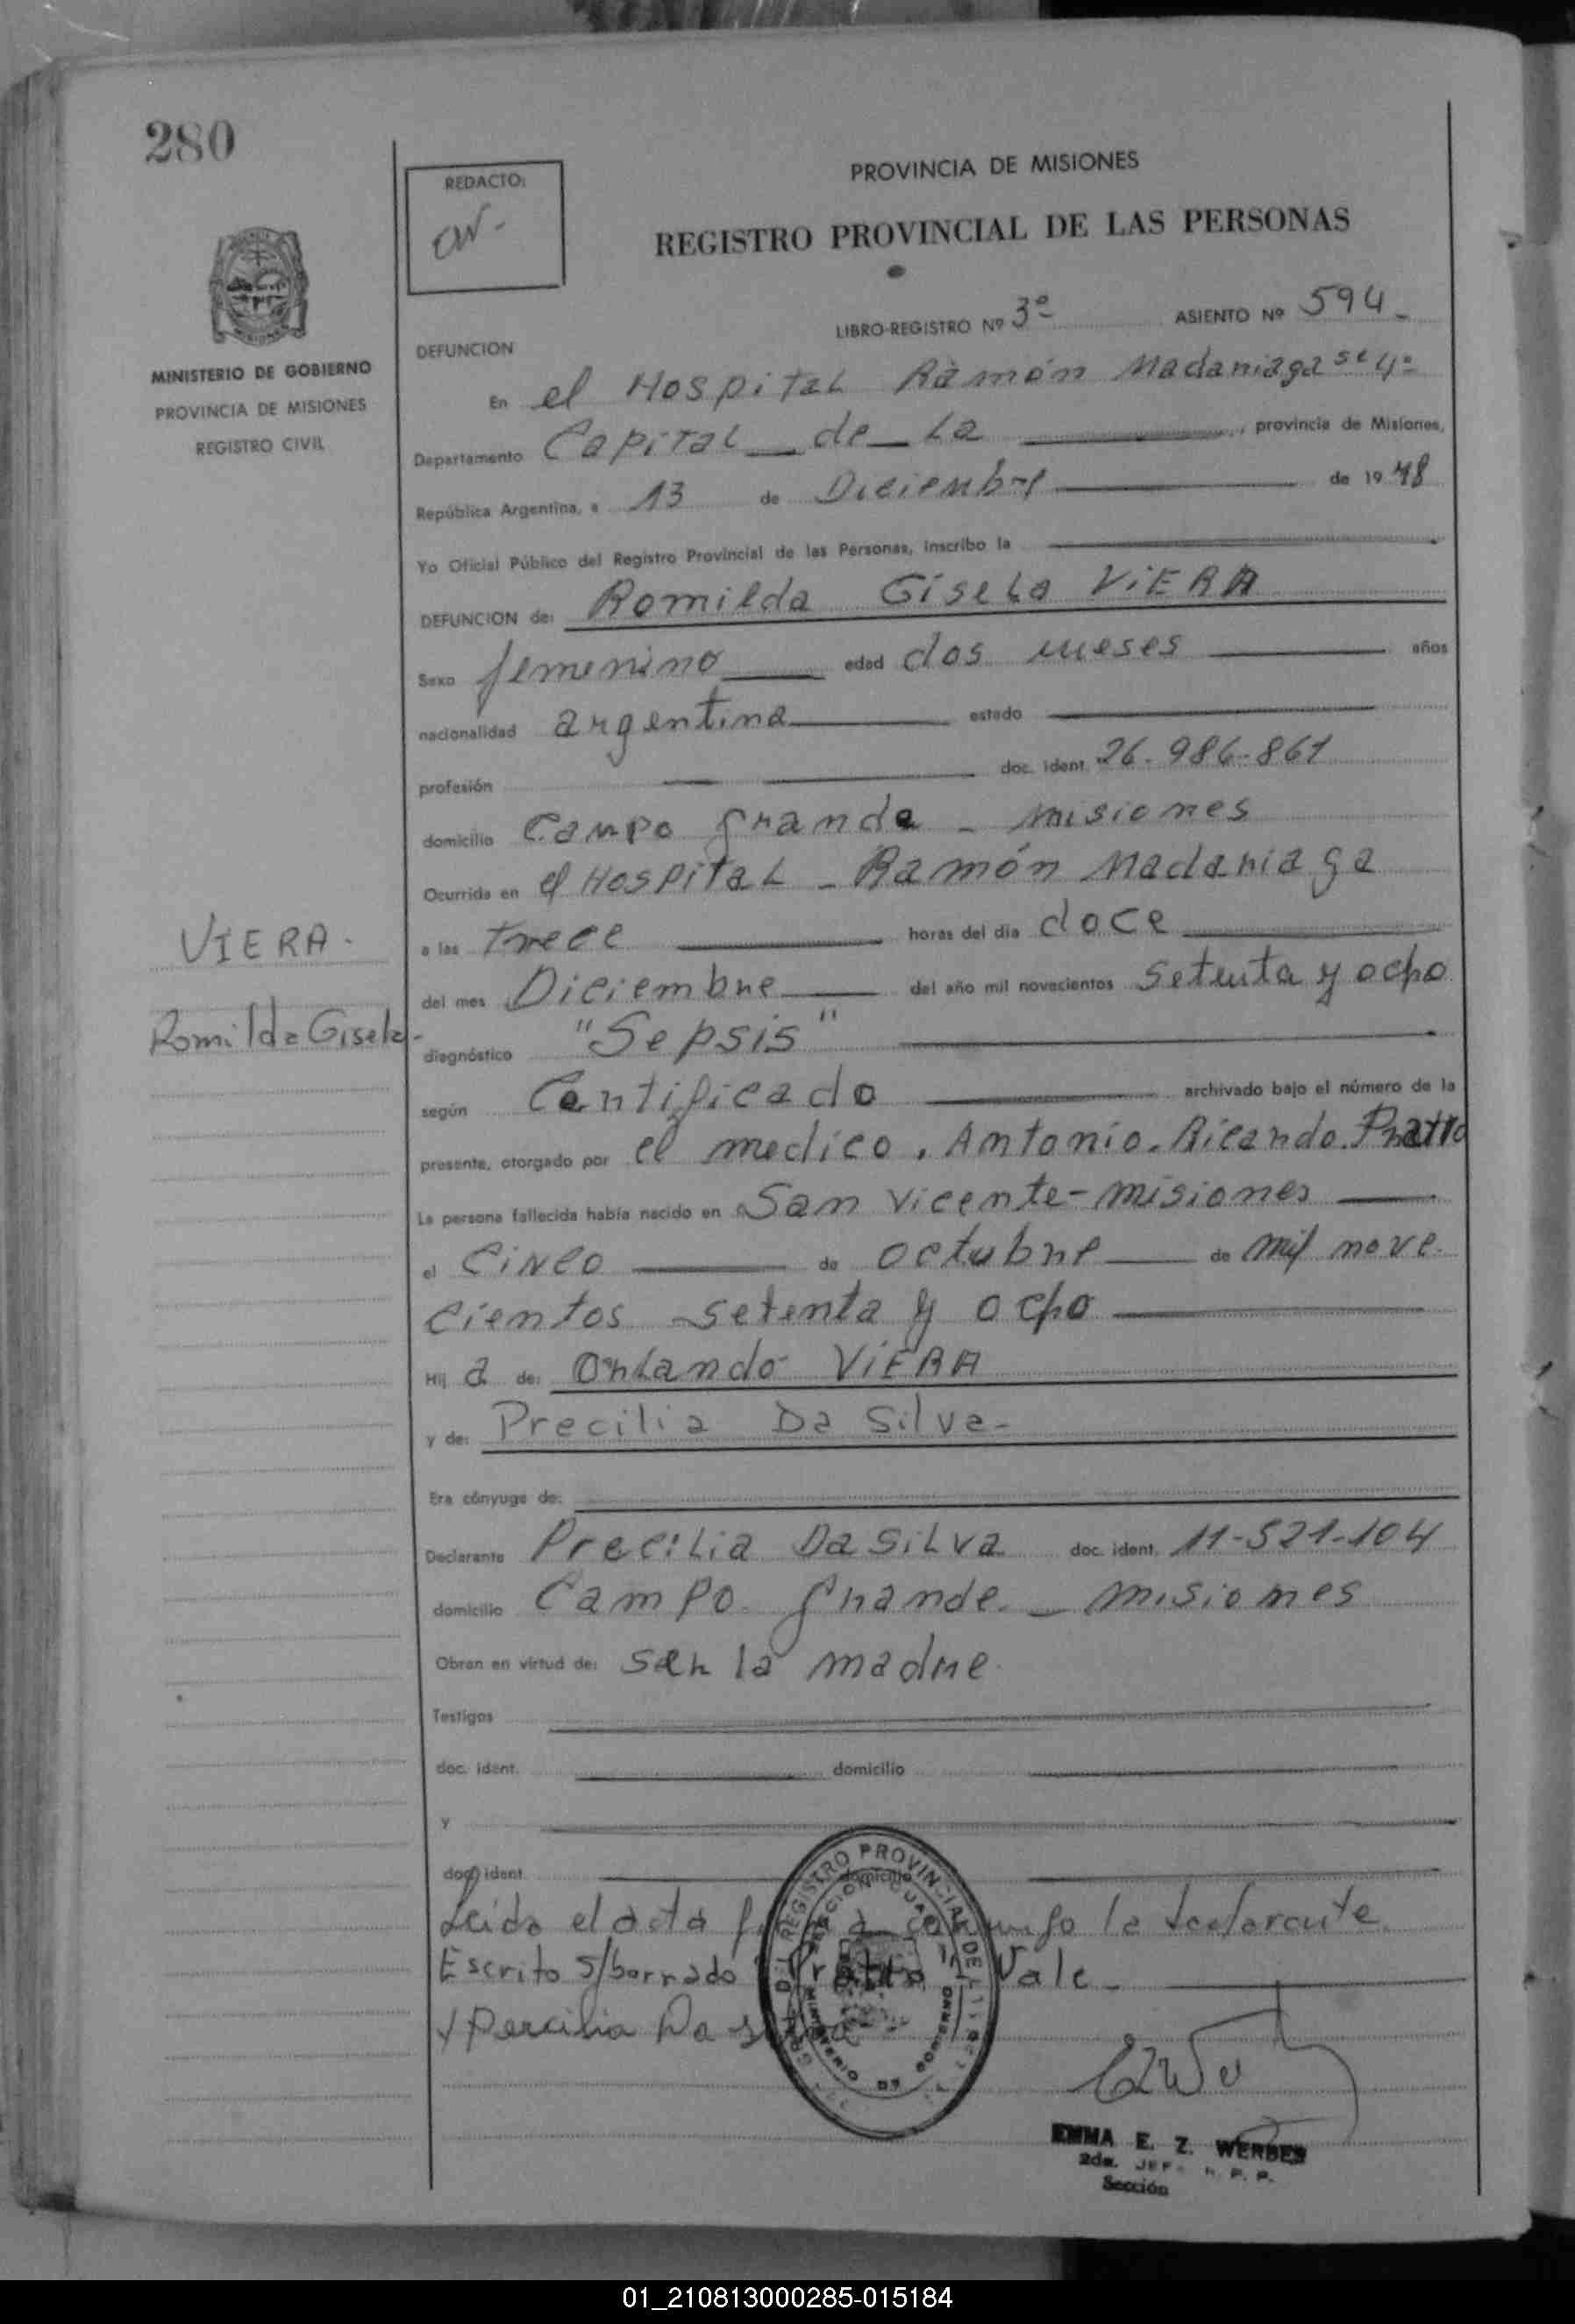 280
REDACTO:
PROVINCIA DE MISIONES
REGISTRO PROVINCIAL DE LAS PERSONAS
MINISTERIO DE GOBIERNO
PROVINCIA DE MISIONES
REGISTRO CIVIL
LIBRO-REGISTRO Nº 3º ASIENTO Nº 594
DEFUNCION
En el Hospital Ramón Madariaga se 4ª
Departamento Capital de La , provincia de Misiones,
República Argentina, a 13 de Diciembre de 19 78
Yo Oficial Público del Registro Provincial de las Personas, inscribo la
DEFUNCION de: Romilda Gisela VIERA
Sexo femenino edad dos meses años
nacionalidad argentina estado
profesión doc. ident. 26-986-861
domicilio Campo Grande - misiones
Ocurrida en el Hospital - Ramón Madariaga
a las trece horas del día doce
del mes Diciembre del año mil novecientos setenta y ocho
diagnóstico "Sepsis"
según Certificado archivado bajo el número de la
presente, otorgado por el medico. Antonio. Ricardo. Pratto
La persona fallecida había nacido en San Vicente - misiones
el Cinco de octubre de mil nove
cientos setenta y ocho
Hij a de: Orlando VIERA
y de: Precilia Da Silva-
Era cónyuge de:
Declarante Precilia Da Silva doc. ident. 11-521-104
domicilio Campo Grande - misiones
Obran en virtud de: ser la madre.
Testigos
doc. ident. domicilio
y
doc. ident. domicilio
Leida el acta conmigo la declarante.
Escrito s/borrado "Pratto" Vale-
Percilia Da Silva
VIERA-
Romilda Gisela-
REGISTRO PROVINCIAL DE
MINISTERIO DE GOBIERNO
EMMA E. Z. WERBES
2da. JEF R. P. P.
Sección
01_210813000285-015184